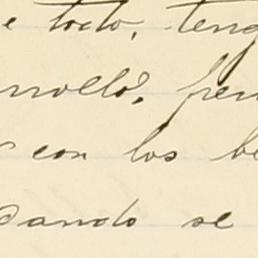 e todo, teng
rrolló, per
con los be
dando se